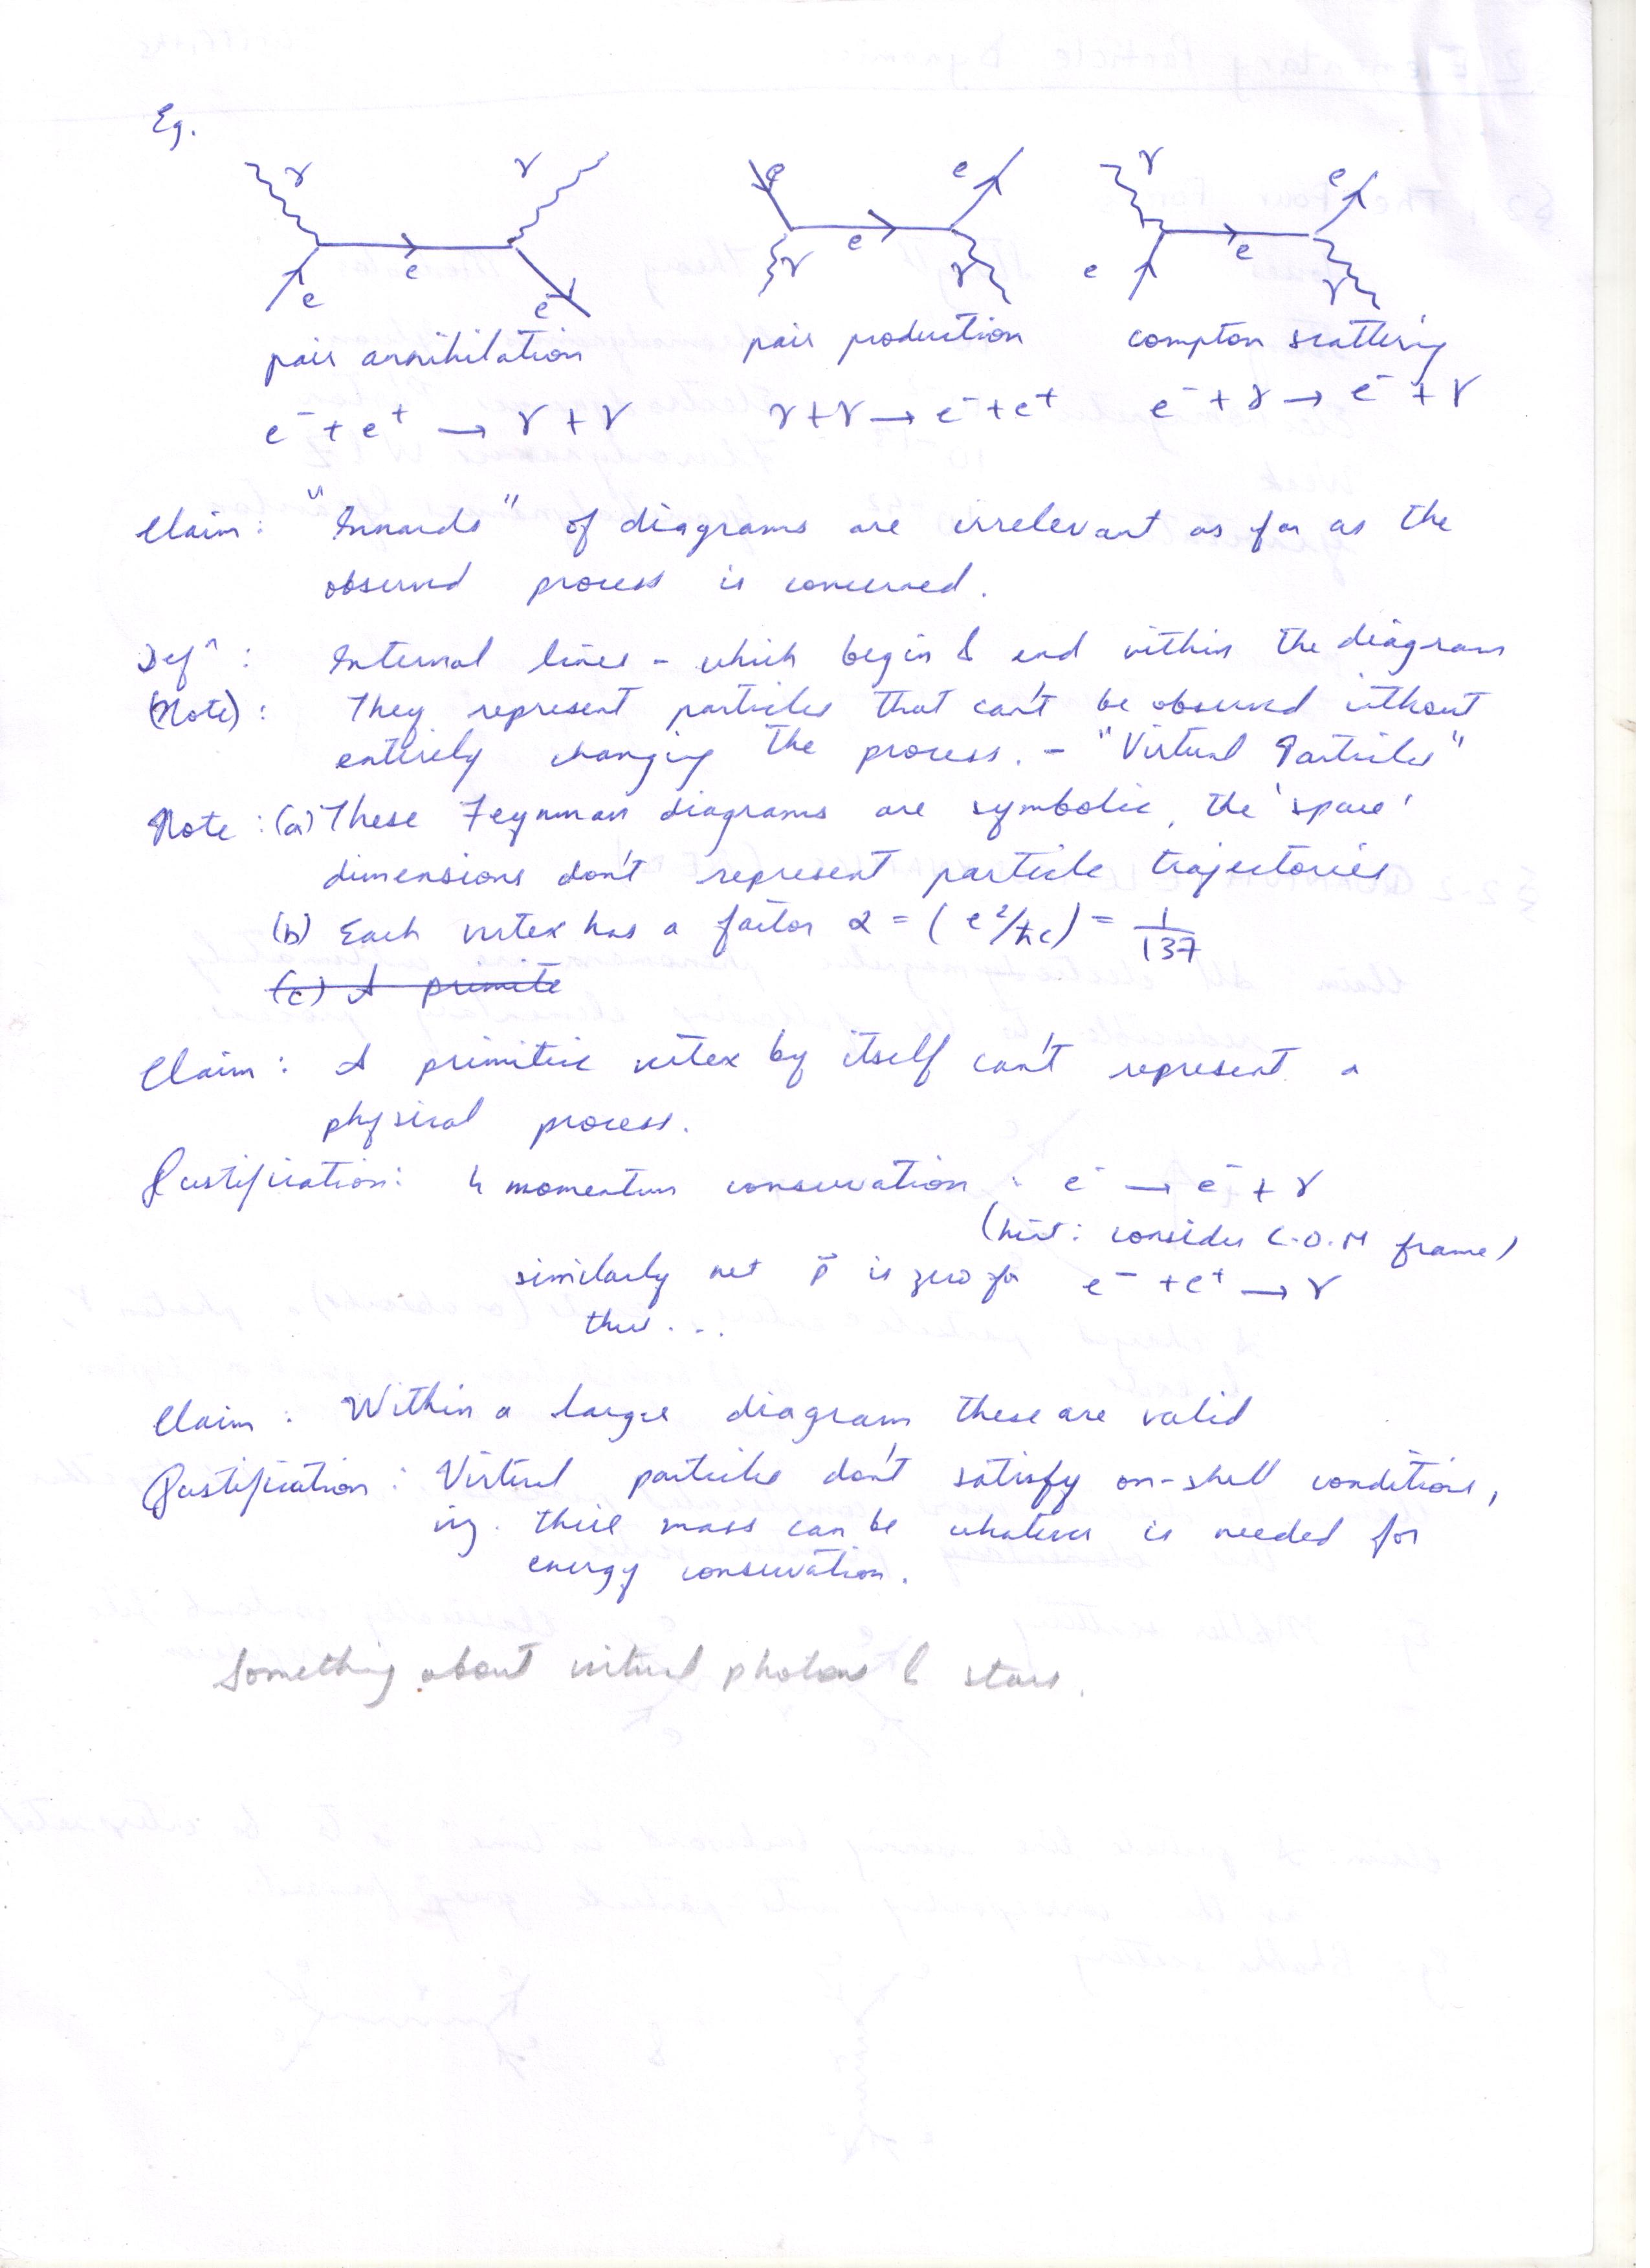 Eg.
γ γ e e γ e
e e e γ γ e e γ
pair annihilation pair production compton scattering
e⁻ + e⁺ → γ + γ γ + γ → e⁻ + e⁺ e⁻ + γ → e⁻ + γ
Claim: "Innards" of diagrams are irrelevant as far as the
observed process is concerned.
Defⁿ: Internal lines - which begin & end within the diagram
(Note): They represent particles that can't be observed without
entirely changing the process. - "Virtual Particles"
Note: (a) These Feynman diagrams are symbolic, the 'space'
dimensions don't represent particle trajectories
(b) Each vertex has a factor α = (e²/ħc) = 1/137
(c) A primite
Claim: A primitive vertex by itself can't represent a
physical process.
Justification: 4 momentum conservation : e⁻ → e⁻ + γ
(hint: consider C.O.M frame)
similarly net p⃗ is zero for e⁻ + e⁺ → γ
thus ...
Claim: Within a larger diagram these are valid
Justification: Virtual particles don't satisfy on-shell conditions,
viz. their mass can be whatever is needed for
energy conservation.
Something about virtual photons & stars.